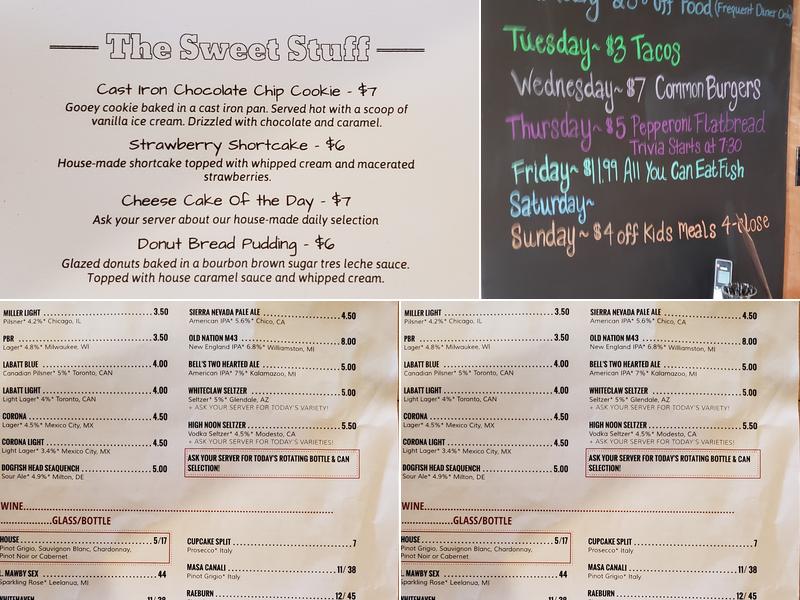 The Sweet Stuff
Cast Iron Chocolate Chip Cookie - $7
Gooey cookie baked in a cast iron pan. Served hot with a scoop of
vanilla ice cream. Drizzled with chocolate and caramel.
Strawberry Shortcake - $6
House-made shortcake topped with whipped cream and macerated
strawberries.
Cheese Cake Of the Day - $7
Ask your server about our house-made daily selection
Donut Bread Pudding - $6
Glazed donuts baked in a bourbon brown sugar tres leche sauce.
Topped with house caramel sauce and whipped cream.
off Food (Frequent Diner Only
Tuesday~ $3 Tacos
Wednesday~ $7 Common Burgers
Thursday~ $5 Pepperoni Flatbread
Trivia Starts at 7:30
Friday~ $11.99 All You Can Eat Fish
Saturday~
Sunday~ $4 off Kids Meals 4-close
MILLER LIGHT 3.50
Pilsner* 4.2%* Chicago, IL
PBR 3.50
Lager* 4.8%* Milwaukee, WI
LABATT BLUE 4.00
Canadian Pilsner* 5%* Toronto, CAN
LABATT LIGHT 4.00
Light Lager* 4%* Toronto, CAN
CORONA 4.50
Lager* 4.5%* Mexico City, MX
CORONA LIGHT 4.50
Light Lager* 3.4%* Mexico City, MX
DOGFISH HEAD SEAQUENCH 5.00
Sour Ale* 4.9%* Milton, DE
SIERRA NEVADA PALE ALE 4.50
American IPA* 5.6%* Chico, CA
OLD NATION M43 8.00
New England IPA* 6.8%* Williamston, MI
BELL'S TWO HEARTED ALE 5.00
American IPA* 7%* Kalamazoo, MI
WHITECLAW SELTZER 5.00
Seltzer* 5%* Glendale, AZ
+ ASK YOUR SERVER FOR TODAY'S VARIETY!
HIGH NOON SELTZER 5.50
Vodka Seltzer* 4.5%* Modesto, CA
+ ASK YOUR SERVER FOR TODAY'S VARIETIES!
ASK YOUR SERVER FOR TODAY'S ROTATING BOTTLE & CAN
SELECTION!
WINE
GLASS/BOTTLE
HOUSE 5/17
Pinot Grigio, Sauvignon Blanc, Chardonnay,
Pinot Noir or Cabernet
L. MAWBY SEX 44
Sparkling Rose* Leelanua, MI
WHITEHAVEN 11/38
CUPCAKE SPLIT 7
Prosecco* Italy
MASA CANALI 11/38
Pinot Grigio* Italy
RAEBURN 12/45
MILLER LIGHT 3.50
Pilsner* 4.2%* Chicago, IL
PBR 3.50
Lager* 4.8%* Milwaukee, WI
LABATT BLUE 4.00
Canadian Pilsner* 5%* Toronto, CAN
LABATT LIGHT 4.00
Light Lager* 4%* Toronto, CAN
CORONA 4.50
Lager* 4.5%* Mexico City, MX
CORONA LIGHT 4.50
Light Lager* 3.4%* Mexico City, MX
DOGFISH HEAD SEAQUENCH 5.00
Sour Ale* 4.9%* Milton, DE
SIERRA NEVADA PALE ALE 4.50
American IPA* 5.6%* Chico, CA
OLD NATION M43 8.00
New England IPA* 6.8%* Williamston, MI
BELL'S TWO HEARTED ALE 5.00
American IPA* 7%* Kalamazoo, MI
WHITECLAW SELTZER 5.00
Seltzer* 5%* Glendale, AZ
+ ASK YOUR SERVER FOR TODAY'S VARIETY!
HIGH NOON SELTZER 5.50
Vodka Seltzer* 4.5%* Modesto, CA
+ ASK YOUR SERVER FOR TODAY'S VARIETIES!
ASK YOUR SERVER FOR TODAY'S ROTATING BOTTLE & CAN
SELECTION!
WINE
GLASS/BOTTLE
HOUSE 5/17
Pinot Grigio, Sauvignon Blanc, Chardonnay,
Pinot Noir or Cabernet
L. MAWBY SEX 44
Sparkling Rose* Leelanua, MI
WHITEHAVEN 11/38
CUPCAKE SPLIT 7
Prosecco* Italy
MASA CANALI 11/38
Pinot Grigio* Italy
RAEBURN 12/45